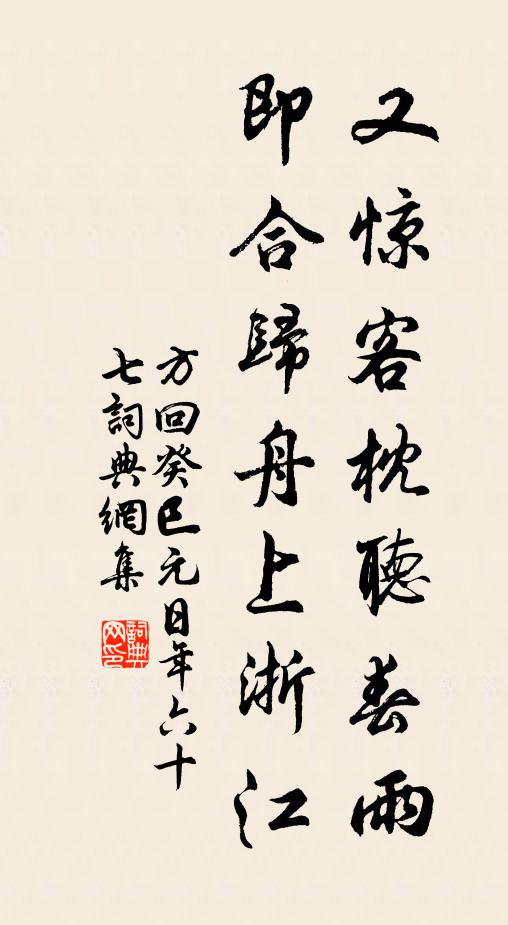 又惊客枕聽春雨
即合歸舟上浙江
方回癸巳元日年六十
七詞典網集
詞典
网印